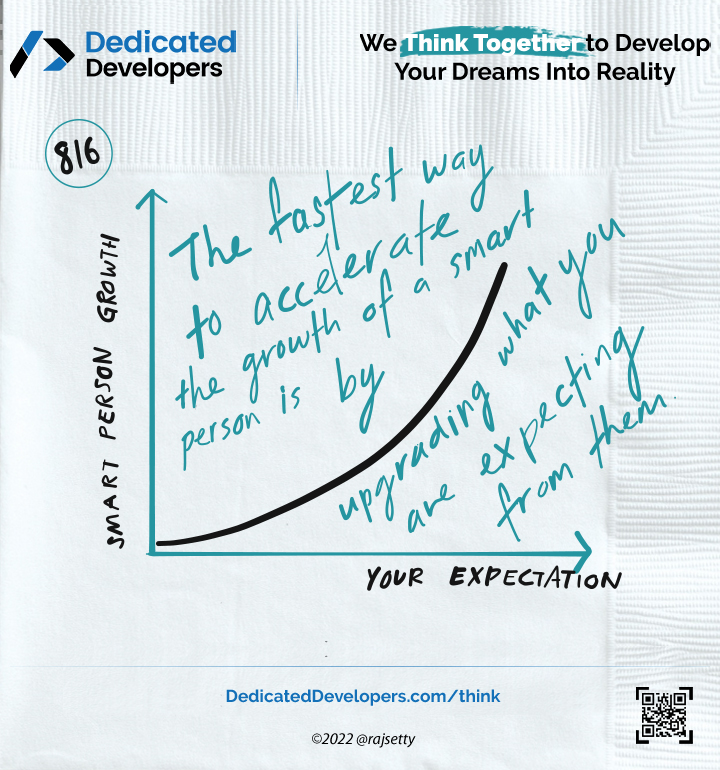 Dedicated
Developers
We Think Together to Develop
Your Dreams Into Reality
816
The fastest way
to accelerate
the growth of a smart
person is by
upgrading what you
are expecting
from them.
SMART PERSON GROWTH
YOUR EXPECTATION
DedicatedDevelopers.com/think
©2022 @rajsetty